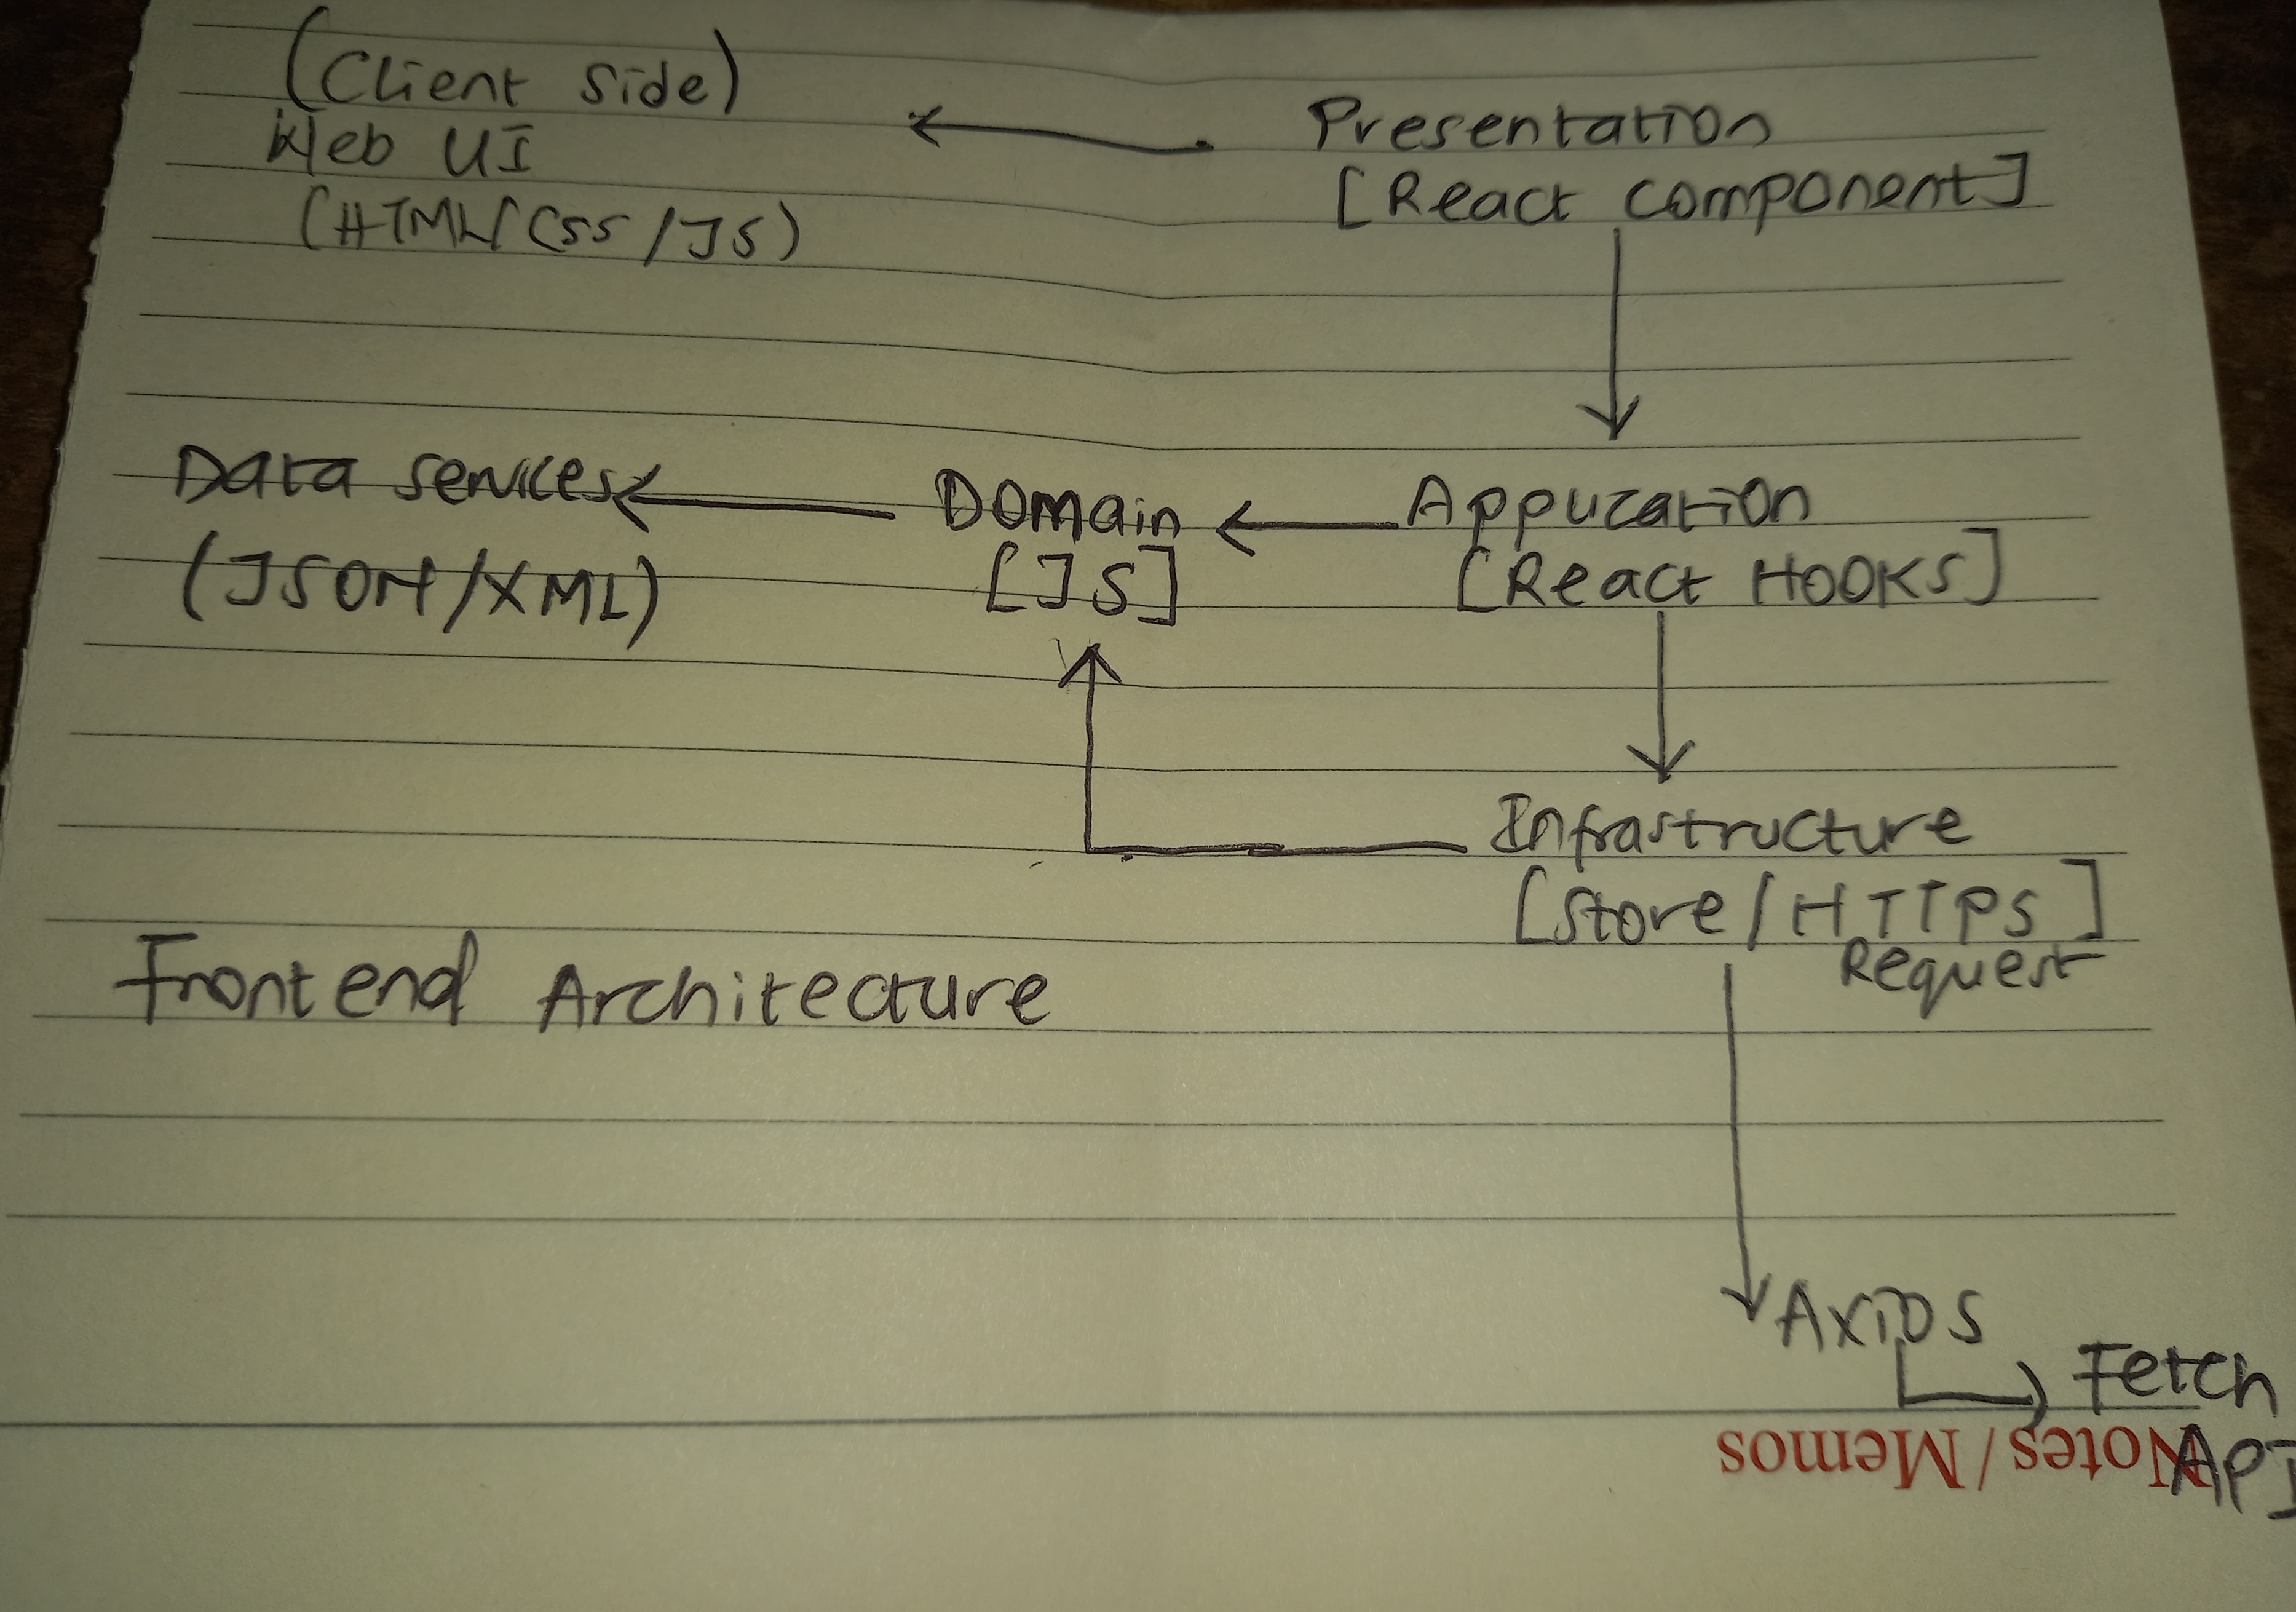 (Client Side)
Web UI
(HTML/CSS/JS)
Presentation
[React component]
Data services
(JSON/XML)
Domain
[JS]
Application
[React HOOKS]
Infrastructure
[Store/HTTPS]
Request
Frontend Architecture
Axios
Fetch
API
Notes/Memos